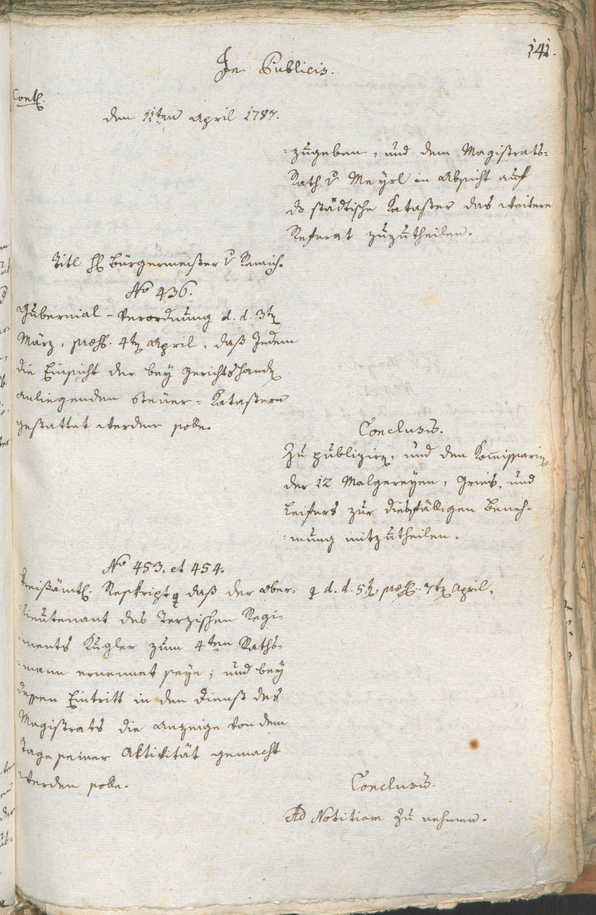 141.
In Publicis.
Contt.
den 11ten April 1787.
zugeben, und dem Magistrats-
Rath v Meyrl in Absicht auf
ds städtische Kataster das weitere
Referat zuzutheilen.
Titl H Bürgermeister v
No 436.
Gubernial-Verordnung d. d. 3t
März, 4t April, daß Jedem
die Einsicht der bey Gerichtshand
anliegenden Steuer-Katastern
gestattet werden solle.
Conclusũ.
Zu publizirn, und den Comissarien
der 12 Malgereyen, Gries, und
Leifers zur diesfälligen Beneh-
mung mitzutheilen.
No 453, et 454.
Kreisämtl. Reskript daß der Ober-
d. d. 5t, 7t April,
lieutenant des Terzischen Regi-
ments Kugler zum 4ten Raths-
mann ernennet seye; und bey
dessen Eintritt in den Dienst des
Magistrats die Anzeige von dem
Tage seiner Aktivität gemacht
werden solle.
Conclusũ.
Ad Notitiam zu nehmen.